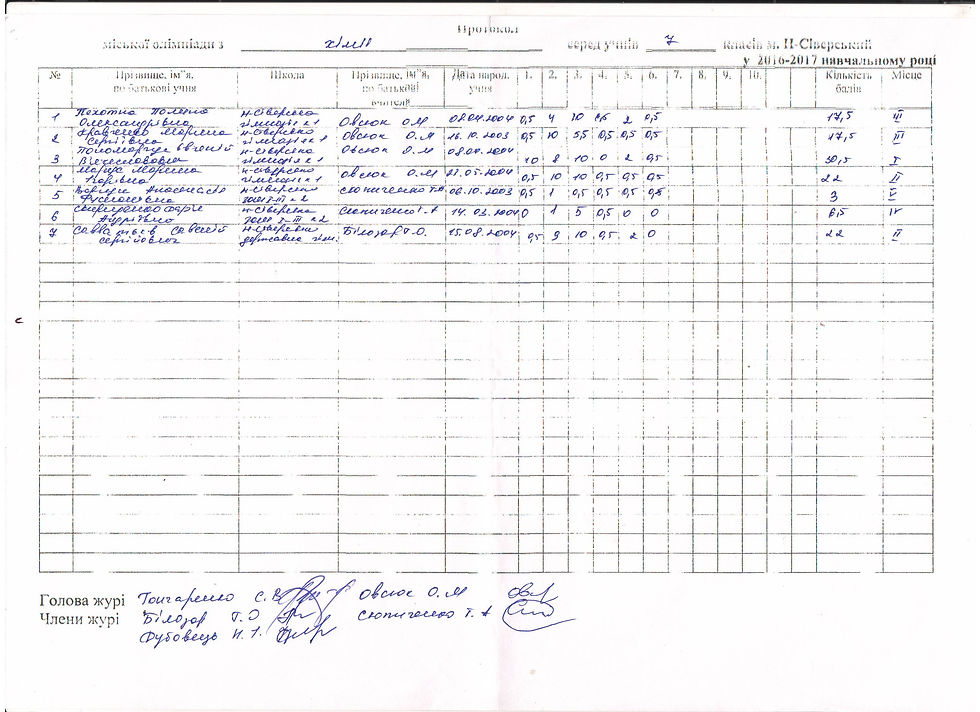 Протокол
міської олімпіади з хімії серед учнів 7 класів м. Н-Сіверський
у 2016-2017 навчальному році
№ Прізвище, ім"я, по батькові учня Школа Прізвище, ім"я, по батькові вчителя Дата народ. учня 1. 2. 3. 4. 5. 6. 7. 8. 9. 10. Кількість балів Місце
1 Олександрівна Н-Сіверська гімназія №1 Овсюк О.М 08.04.2004 0,5 4 10 2 0,5 17,5 III
2 Кравченко Марина Сергіївна Н-Сіверська гімназія №1 Овсюк О.М 16.10.2003 0,5 10 5,5 0,5 0,5 0,5 17,5 III
3 Вячеславовна Н-Сіверська гімназія №1 Овсюк О.М 10 8 10 0 2 0,5 30,5 I
4 Марина Юріївна Н-Сіверська гімназія №1 Овсюк О.М 21.05.2004 0,5 10 10 0,5 0,5 0,5 22 II
5 Анастасія Н-Сіверська зош I-III №2 Сюпиченко Т.А 06.10.2003 0,5 1 0,5 0,5 0,5 3
6 Андріївна Н-Сіверська зош I-III №2 Сюпиченко Т.А 14.03.2004 0 1 5 0,5 0 0 6,5 IV
7 Савва Савелій Сергійович Н-Сіверська державна гімн. Білозор Т.О. 15.08.2004 0,5 9 10 0,5 2 0 22 II
Голова журі Гончаренко С.В Овсюк О.М
Члени журі Білозор Т.О Сюпиченко Т.А
Фубовець Н.І.